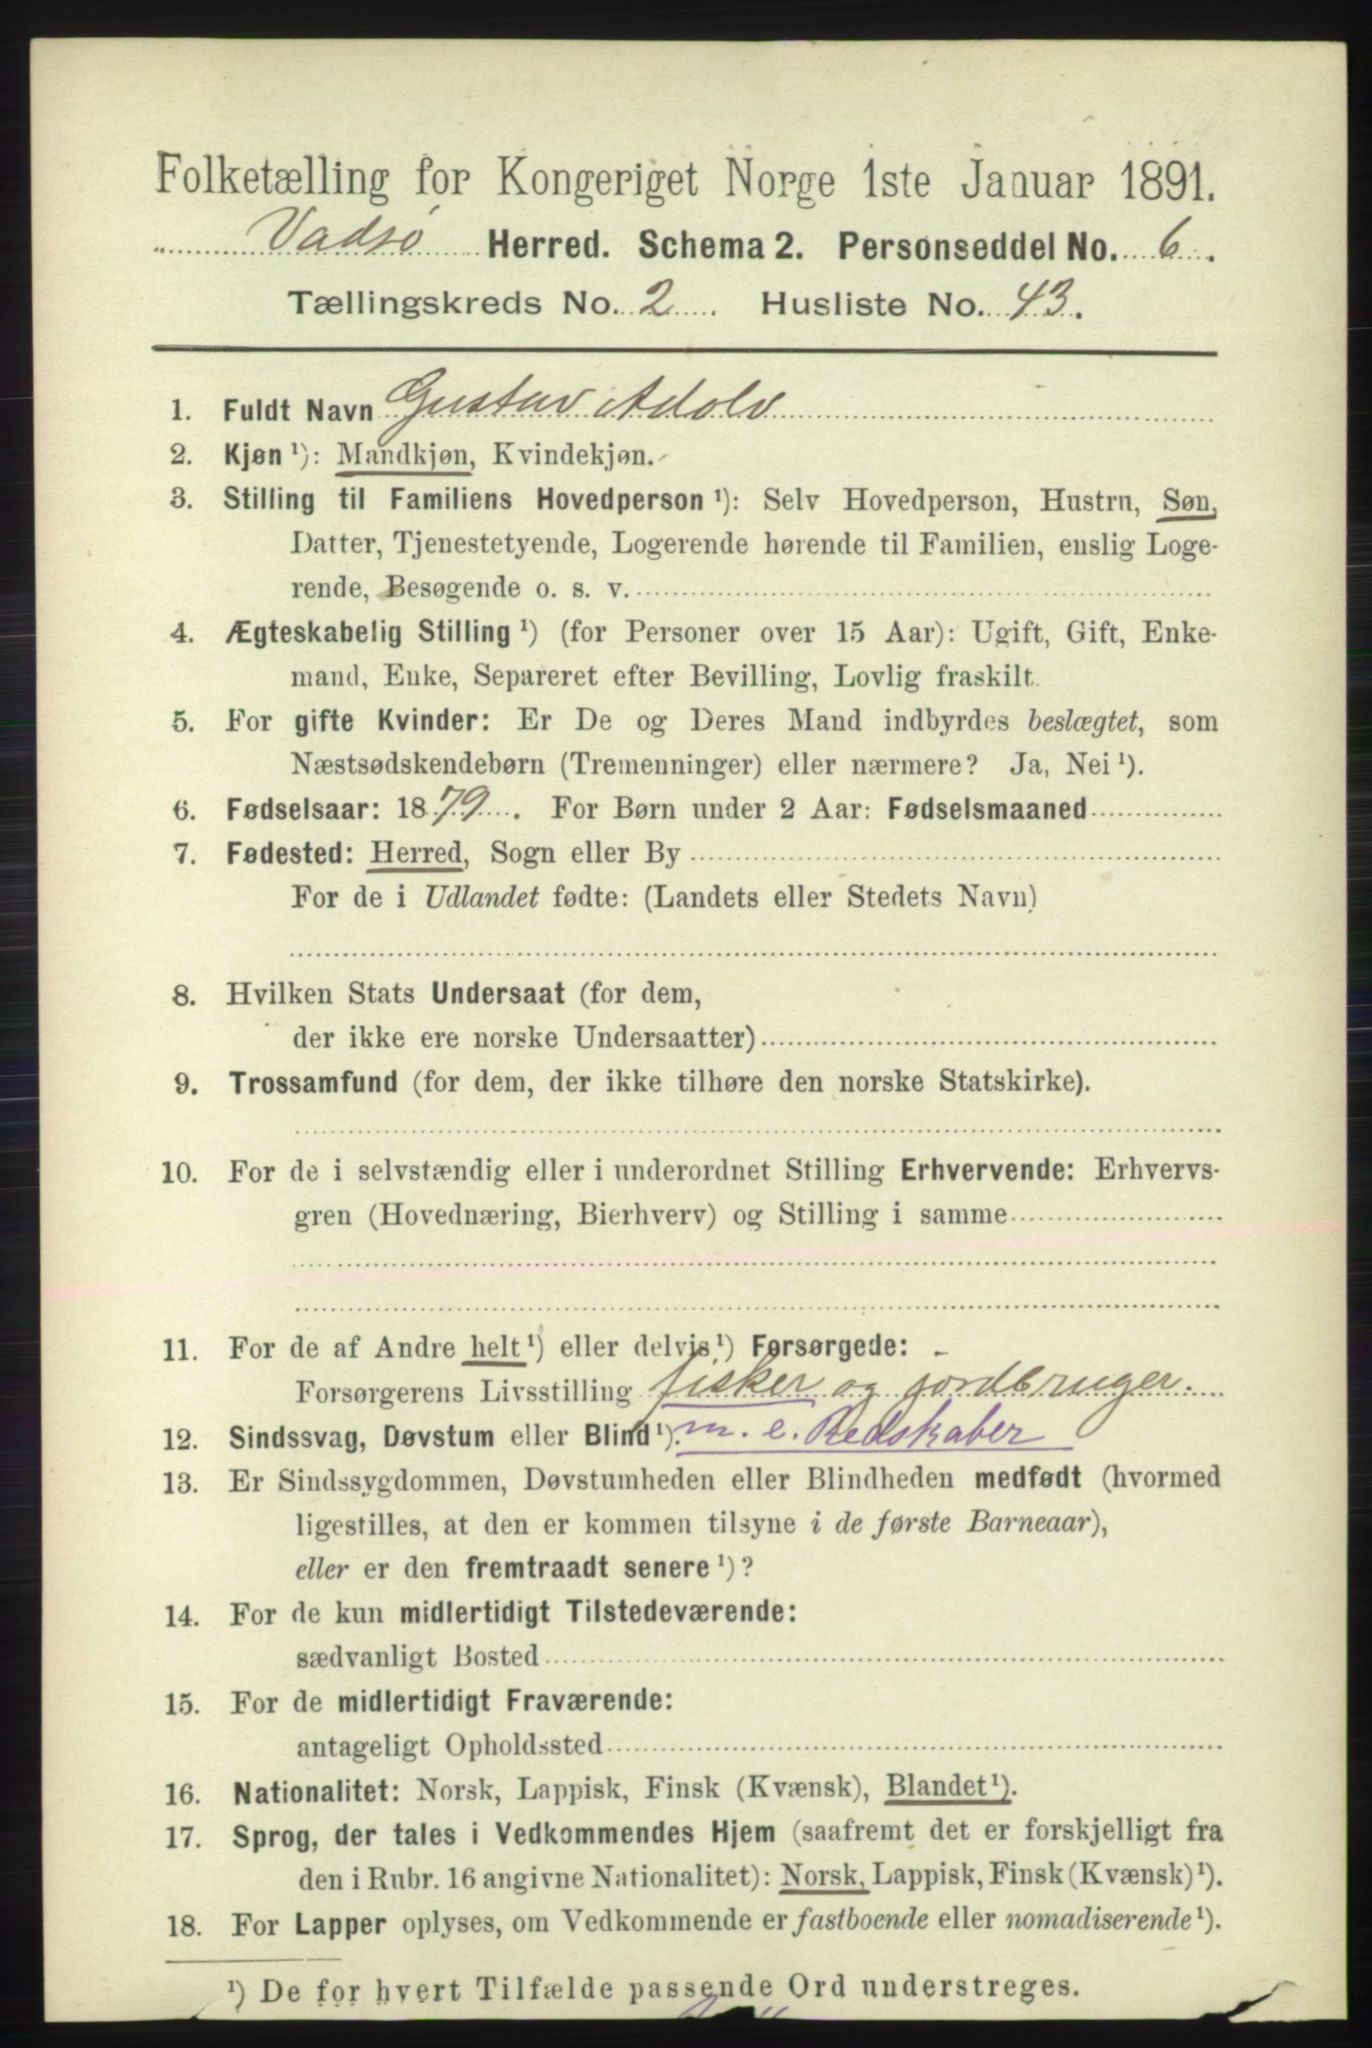 Folketælling for Kongeriget Norge 1ste Januar 1891.
Vadsø Herred. Schema 2. Personseddel No. 6.
Tællingskreds No. 2. Husliste No. 43.
1. Fuldt Navn Gustav Adolv
2. Kjøn ¹): Mandkjøn, Kvindekjøn.
3. Stilling til Familiens Hovedperson ¹): Selv Hovedperson, Hustru, Søn,
Datter, Tjenestetyende, Logerende hørende til Familien, enslig Loge-
rende, Besøgende o. s. v.
4. Ægteskabelig Stilling ¹) (for Personer over 15 Aar): Ugift, Gift, Enke-
mand, Enke, Separeret efter Bevilling, Lovlig fraskilt.
5. For gifte Kvinder: Er De og Deres Mand indbyrdes beslægtet, som
Næstsødskendebørn (Tremenninger) eller nærmere? Ja, Nei ¹).
6. Fødselsaar: 1879. For Børn under 2 Aar: Fødselsmaaned
7. Fødested: Herred, Sogn eller By
For de i Udlandet fødte: (Landets eller Stedets Navn)
8. Hvilken Stats Undersaat (for dem,
der ikke ere norske Undersaatter)
9. Trossamfund (for dem, der ikke tilhøre den norske Statskirke).
10. For de i selvstændig eller i underordnet Stilling Erhvervende: Erhvervs-
gren (Hovednæring, Bierhverv) og Stilling i samme
11. For de af Andre helt ¹) eller delvis ¹) Forsørgede:
Forsørgerens Livsstilling fisker og jordbruger.
12. Sindssvag, Døvstum eller Blind ¹). m. e. Redskaber
13. Er Sindssygdommen, Døvstumheden eller Blindheden medfødt (hvormed
ligestilles, at den er kommen tilsyne i de første Barneaar),
eller er den fremtraadt senere ¹)?
14. For de kun midlertidigt Tilstedeværende:
sædvanligt Bosted
15. For de midlertidigt Fraværende:
antageligt Opholdssted
16. Nationalitet: Norsk, Lappisk, Finsk (Kvænsk), Blandet ¹).
17. Sprog, der tales i Vedkommendes Hjem (saafremt det er forskjelligt fra
den i Rubr. 16 angivne Nationalitet): Norsk, Lappisk, Finsk (Kvænsk) ¹).
18. For Lapper oplyses, om Vedkommende er fastboende eller nomadiserende ¹).
¹) De for hvert Tilfælde passende Ord understreges.